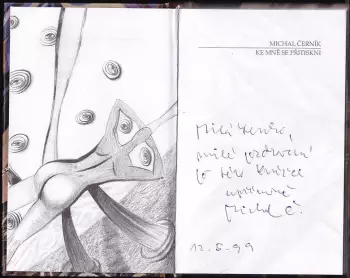 MICHAL ČERNÍK
KE MNĚ SE PŘITISKNI
Milá
milé pozdravení
upřímně
Michal Č.
12.5.99